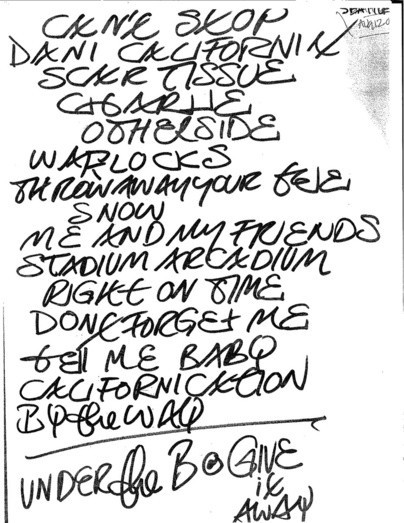 CAN'T STOP
DANI CALIFORNIA
SCAR TISSUE
CHARLIE
OTHERSIDE
WARLOCKS
THROW AWAY YOUR TELE
SNOW
ME AND MY FRIENDS
STADIUM ARCADIUM
RIGHT ON TIME
DON'T FORGET ME
tell ME BABY
CALIFORNICATION
BY the WAY
UNDER the B GIVE
it
AWAY